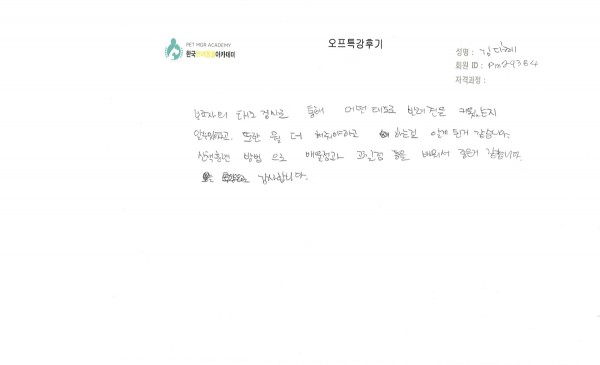 PET MGR ACADEMY
한국반려동물아카데미
오프특강후기
성명 : 김다예
회원 ID : pm29364
자격과정 :
보호자의 태도 검사를 통해 어떤 태도로 반려견을 키웠는지
알게되었고, 또한 뭘 더 해줘야하고 하는걸 알게 된거 같습니다.
산책훈련 방법 으로 배열정과 등을 배워서 좋은거 같습니다.
감사합니다.